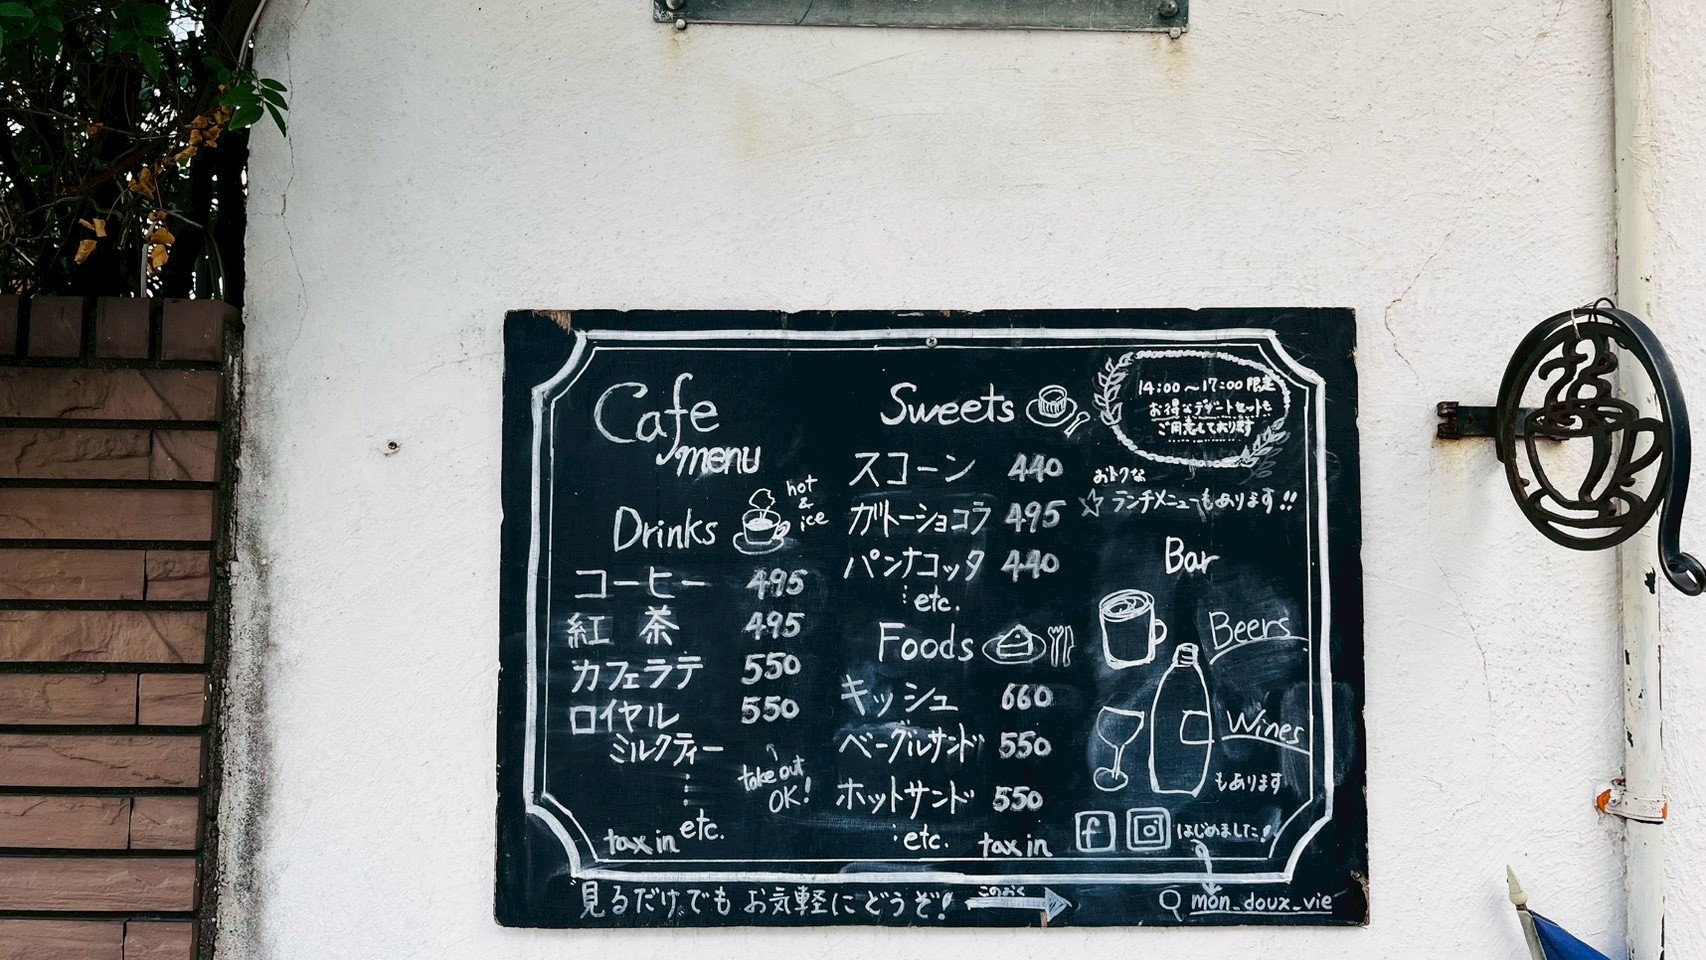 Cafe
menu
Drinks
hot
&
ice
コーヒー 495
紅茶 495
カフェラテ 550
ロイヤル 550
ミルクティー
take out
OK!
etc.
tax in
Sweets
スコーン 440
ガトーショコラ 495
パンナコッタ 440
etc.
Foods
キッシュ 660
ベーグルサンド 550
ホットサンド 550
etc. tax in
14:00～17:00限定
お得なデザートセットも
ご用意しております
おトクな
☆ランチメニューもあります!!
Bar
Beers
Wines
もあります
f はじめました!
mon_doux_vie
見るだけでも お気軽にどうぞ!
このおく